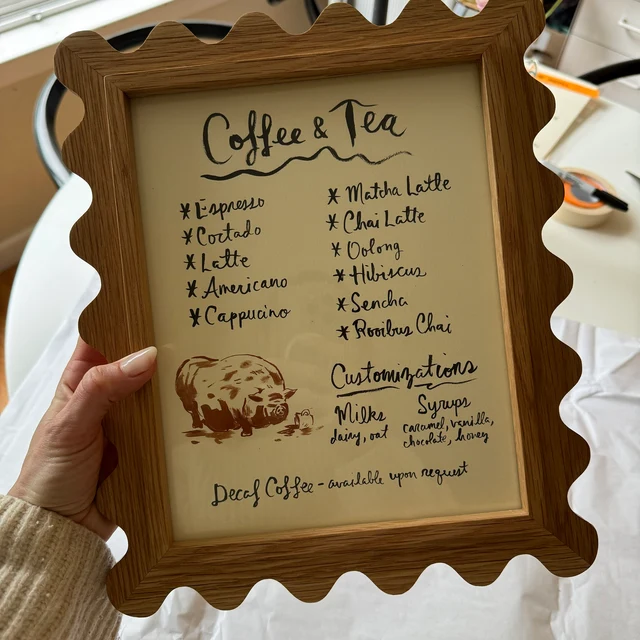 Coffee & Tea
* Espresso
* Cortado
* Latte
* Americano
* Cappucino
* Matcha Latte
* Chai Latte
* Oolong
* Hibiscus
* Sencha
* Rooibus Chai
Customizations
Milks
dairy, oat
Syrups
caramel, vanilla,
chocolate, honey
Decaf Coffee - available upon request